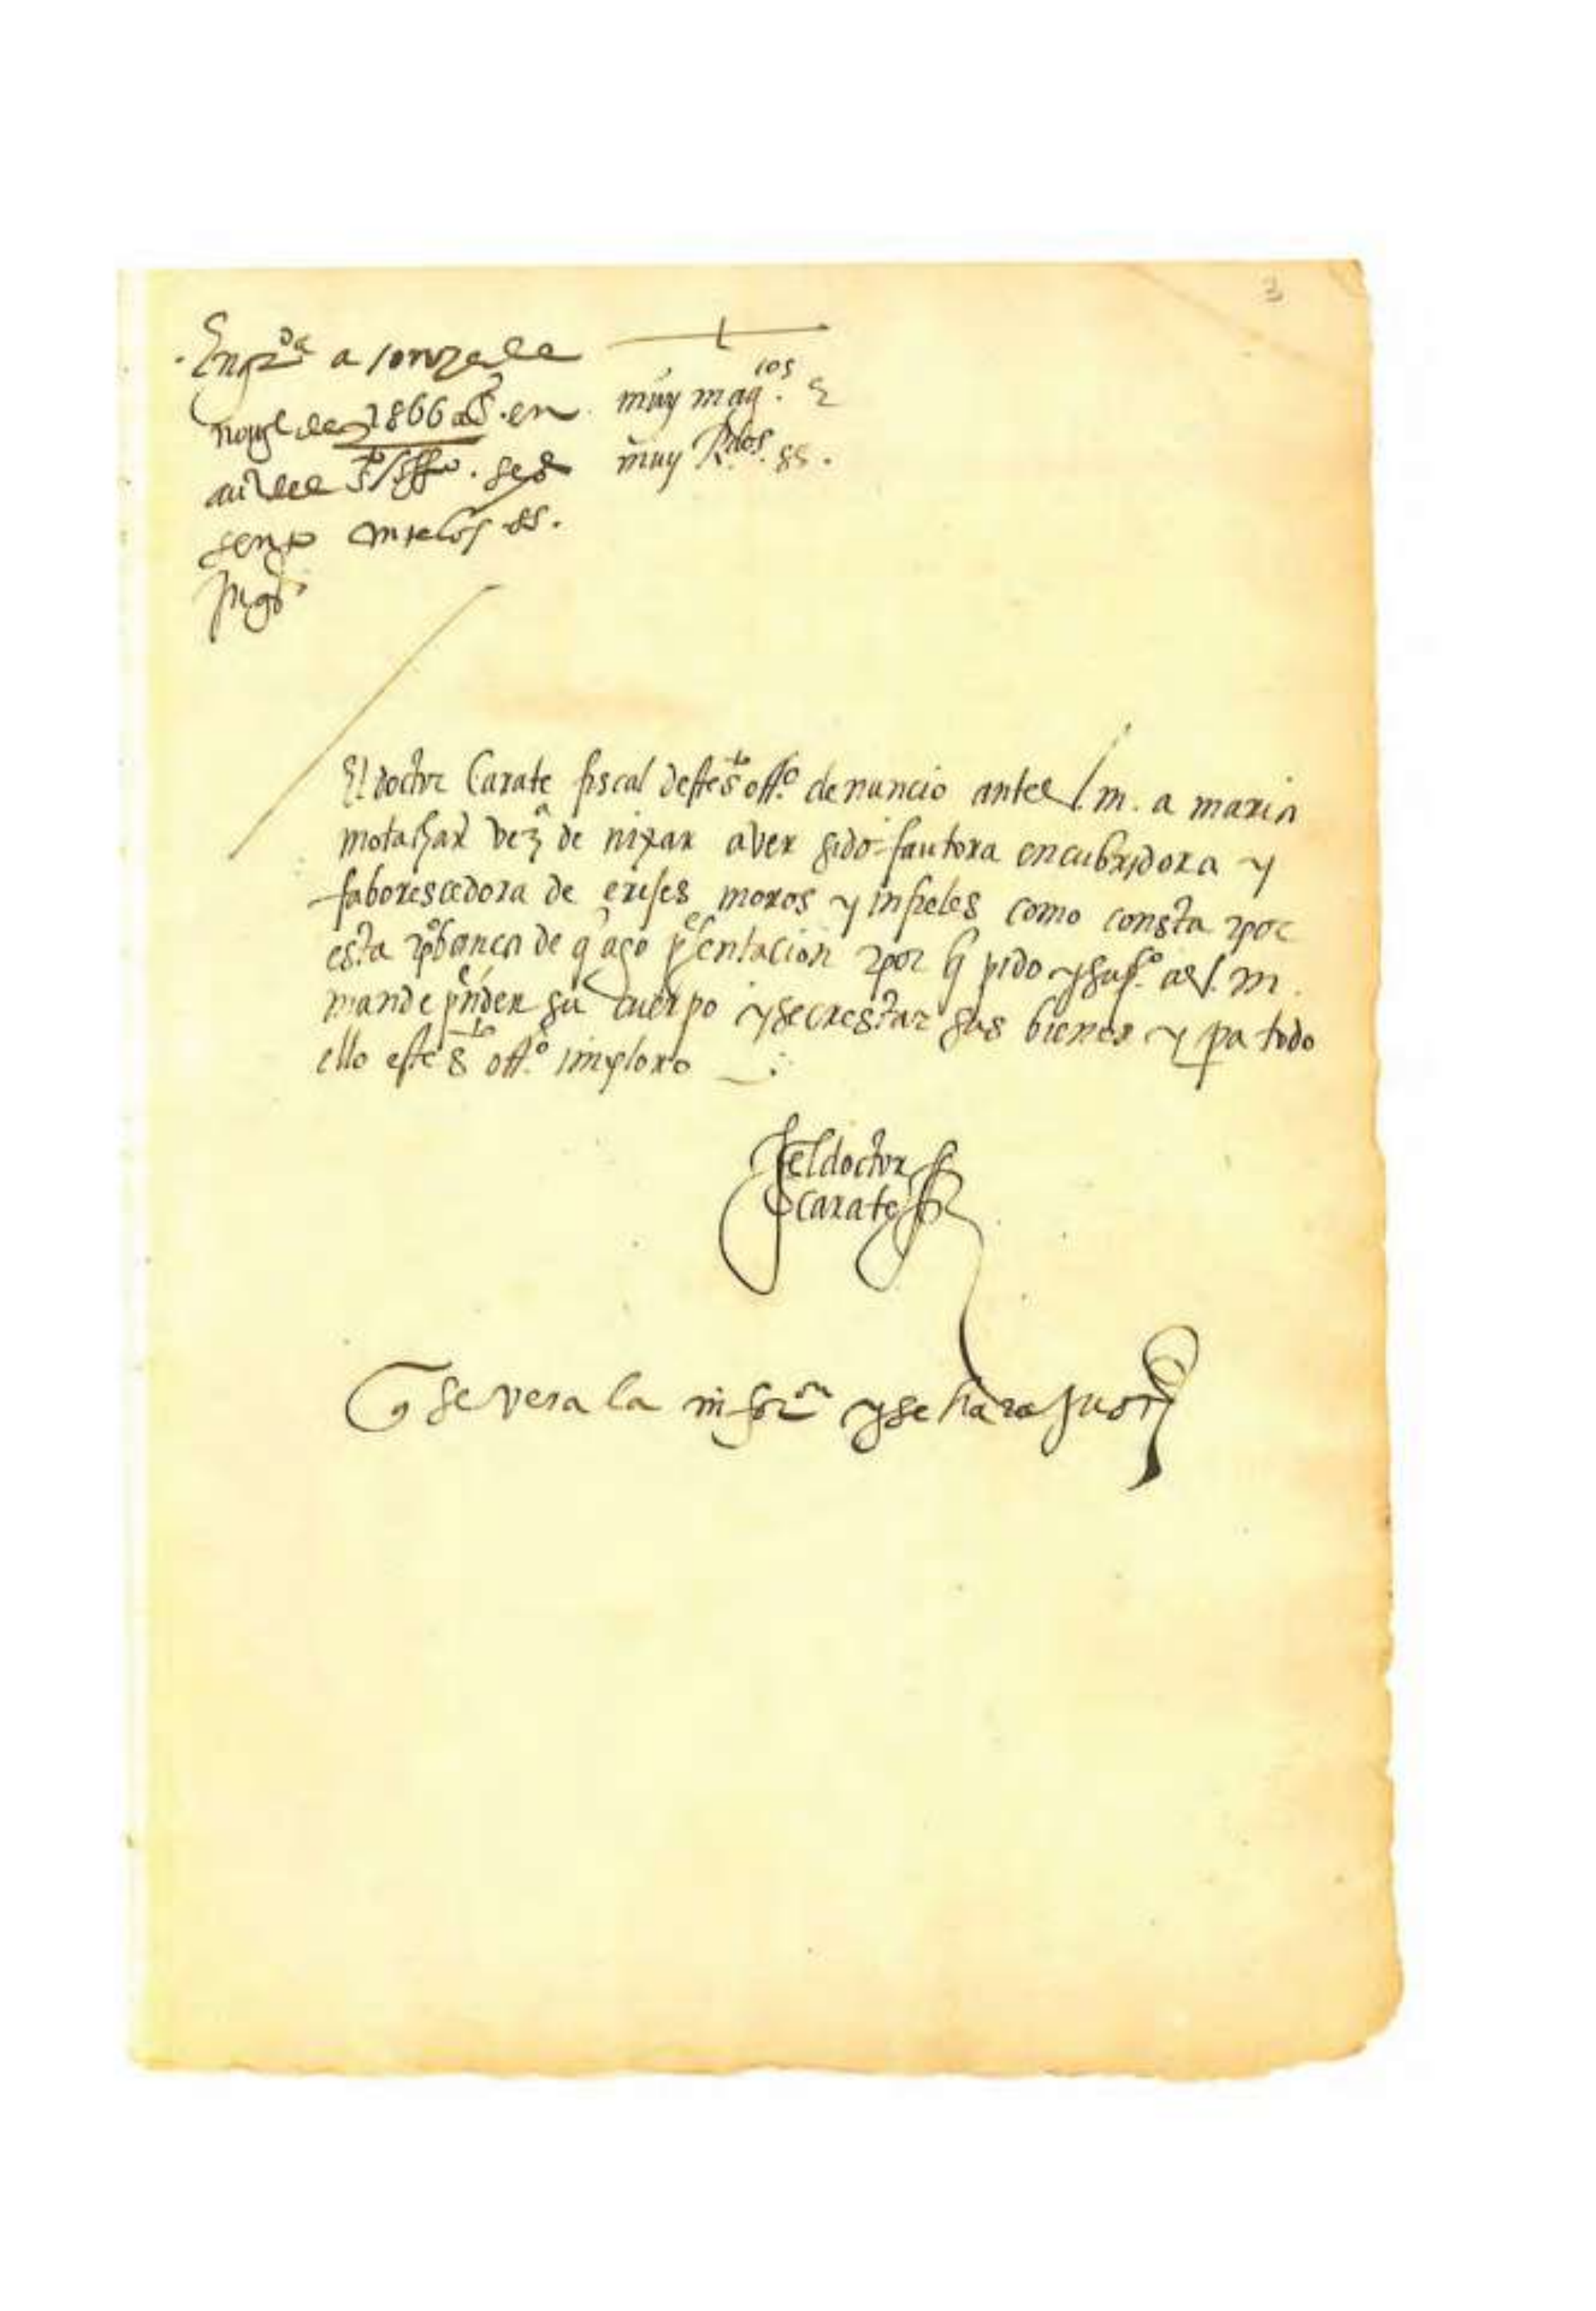 3
En gr.da a honze de
nov.e de 1566 a.s en
aud.a del s.to off.o se p
sento ante los ss.
muy mag.cos e
muy R.dos ss.
El doctor Carate fiscal deste s.to off.o denuncio ante v. m. a maria
motahar vez.a de nixar aver sido fautora encubridora y
faborescedora de erejes moros y infieles como consta por
esta pobanca de q ago presentacion por q pido y sup.co a v. m.
mande pnder su cuerpo y secrestar sus bienes y pa todo
ello este s.to off.o imploro
el doctor
carate
q se vera la infor.on y se hara just.a